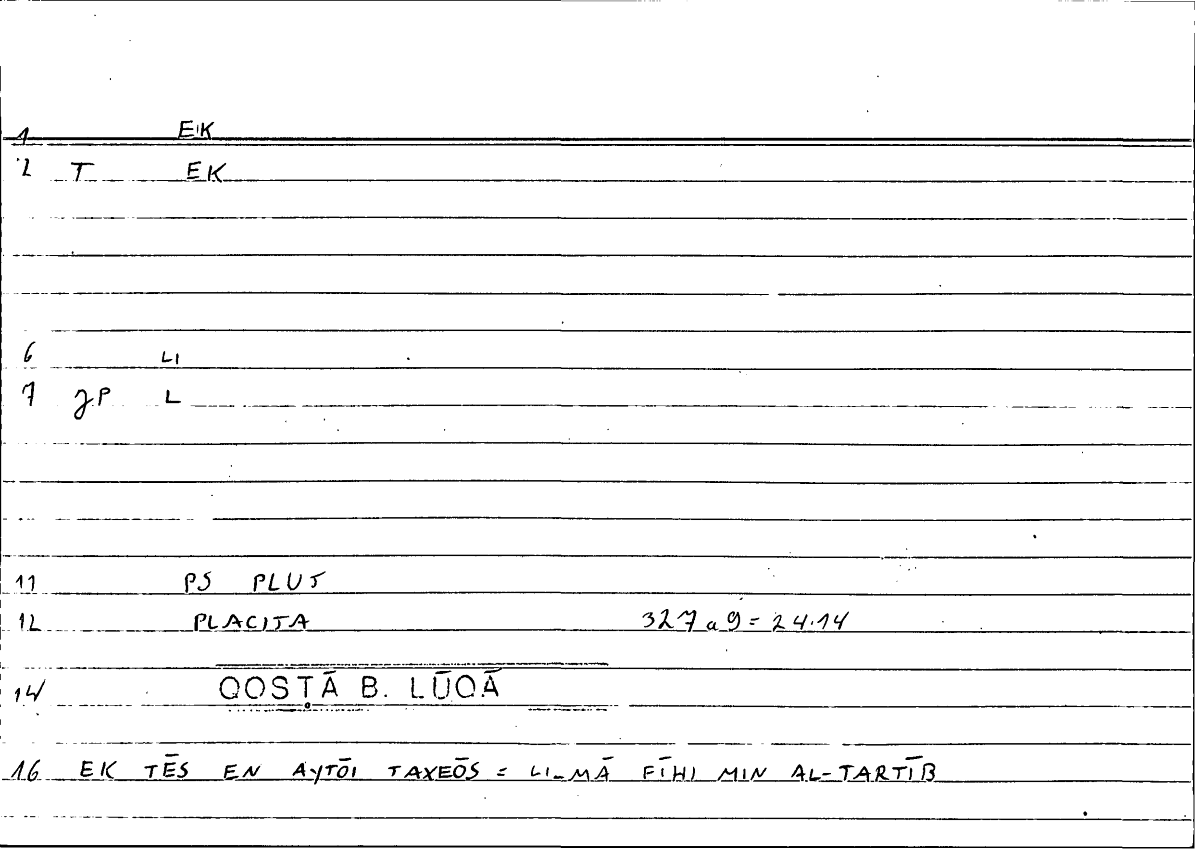 1 EK
2 T EK
6 LI
7 JP L
11 PS PLUT
12 PLACITA 327a9 = 24.14
14 QOSṬĀ B. LŪQĀ
16 EK TĒS EN AYTŌI TAXEŌS = LI-MĀ FĪHI MIN AL-TARTĪB